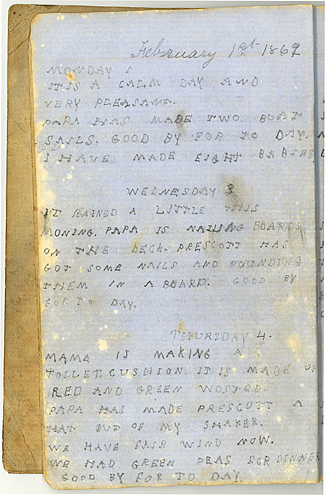 February 1st 1869
MONDAY
IT IS A CALM DAY AND
VERY PLEASANT.
PAPA HAS MADE TWO BOAT
SAILS. GOOD BY FOR TO DAY.
I HAVE MADE EIGHT BABIES.
WEDNESDAY 3
IT RAINED A LITTLE THIS
MONING. PAPA IS NAILING BOARDS
ON THE DECK. PRESCOTT HAS
GOT SOME NAILS AND POUNDING
THEM IN A BOARD. GOOD BY
FOR TO DAY.
THURSDAY 4.
MAMA IS MAKING A
TOILET CUSHION IT IS MADE OF
RED AND GREEN WOSTED.
PAPA HAS MADE PRESCOTT A
HAT OUT OF MY SHAKER.
WE HAVE FAIR WIND NOW.
WE HAD GREEN PEAS FOR DINNER
GOOD BY FOR TO DAY.